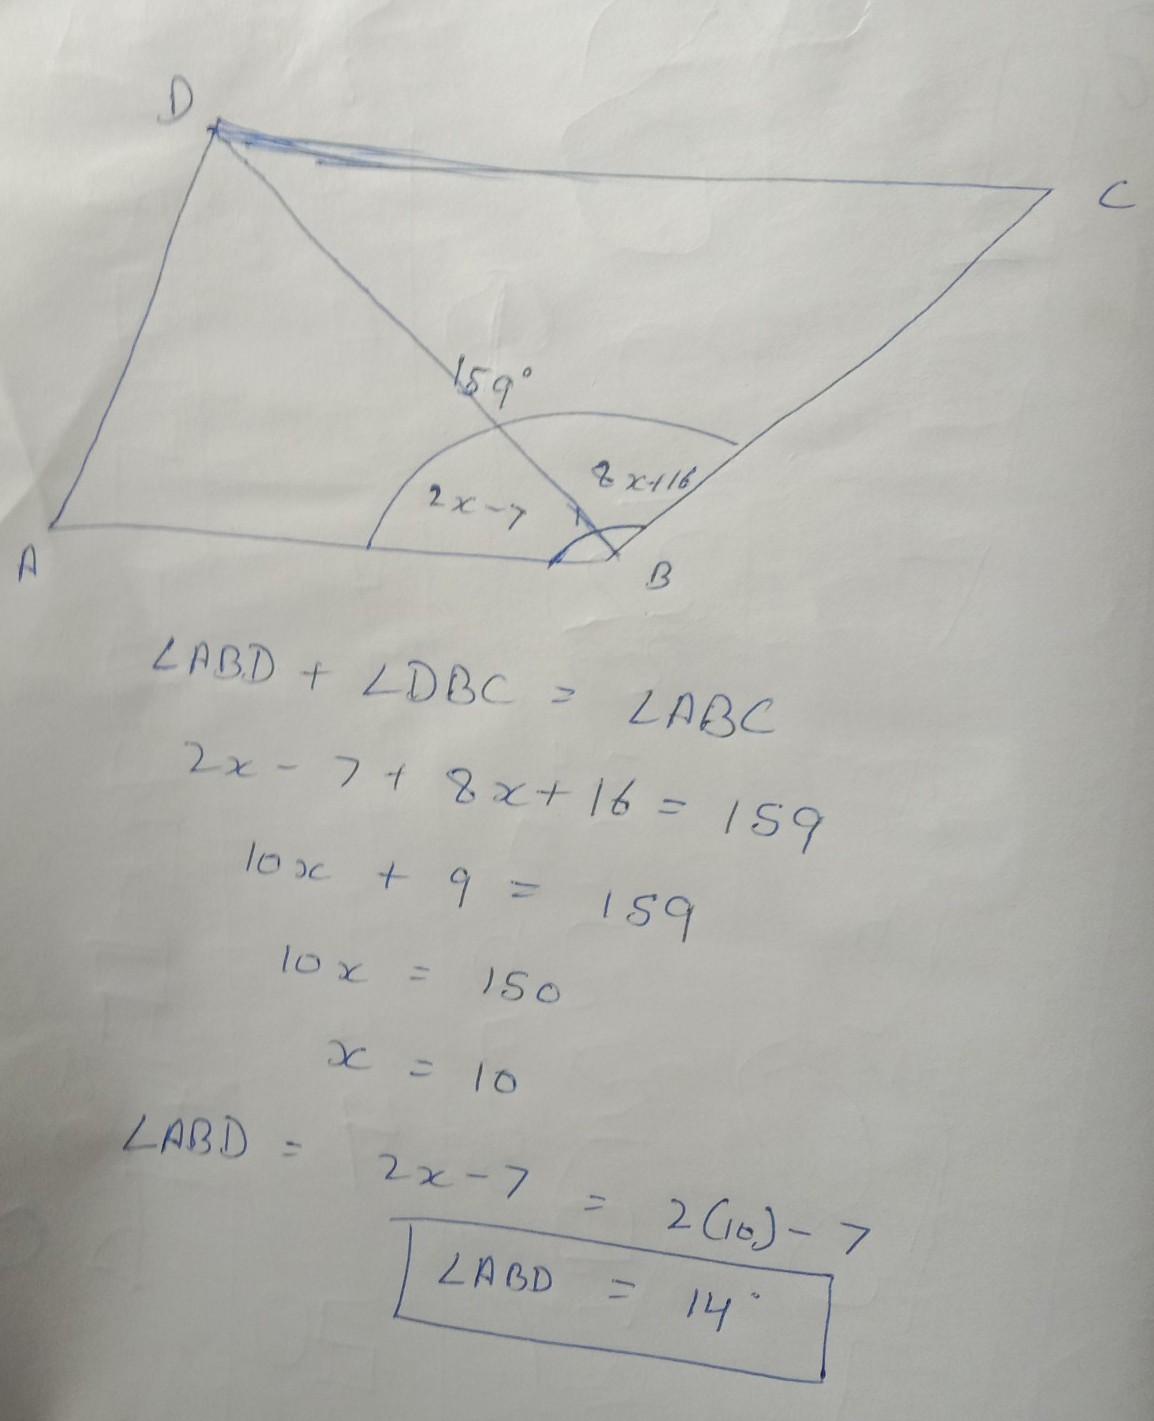 D
C
159°
8x+16
2x-7
A
B
∠ABD + ∠DBC = ∠ABC
2x - 7 + 8x + 16 = 159
10x + 9 = 159
10x = 150
x = 10
∠ABD = 2x - 7 = 2(10) - 7
∠ABD = 14°